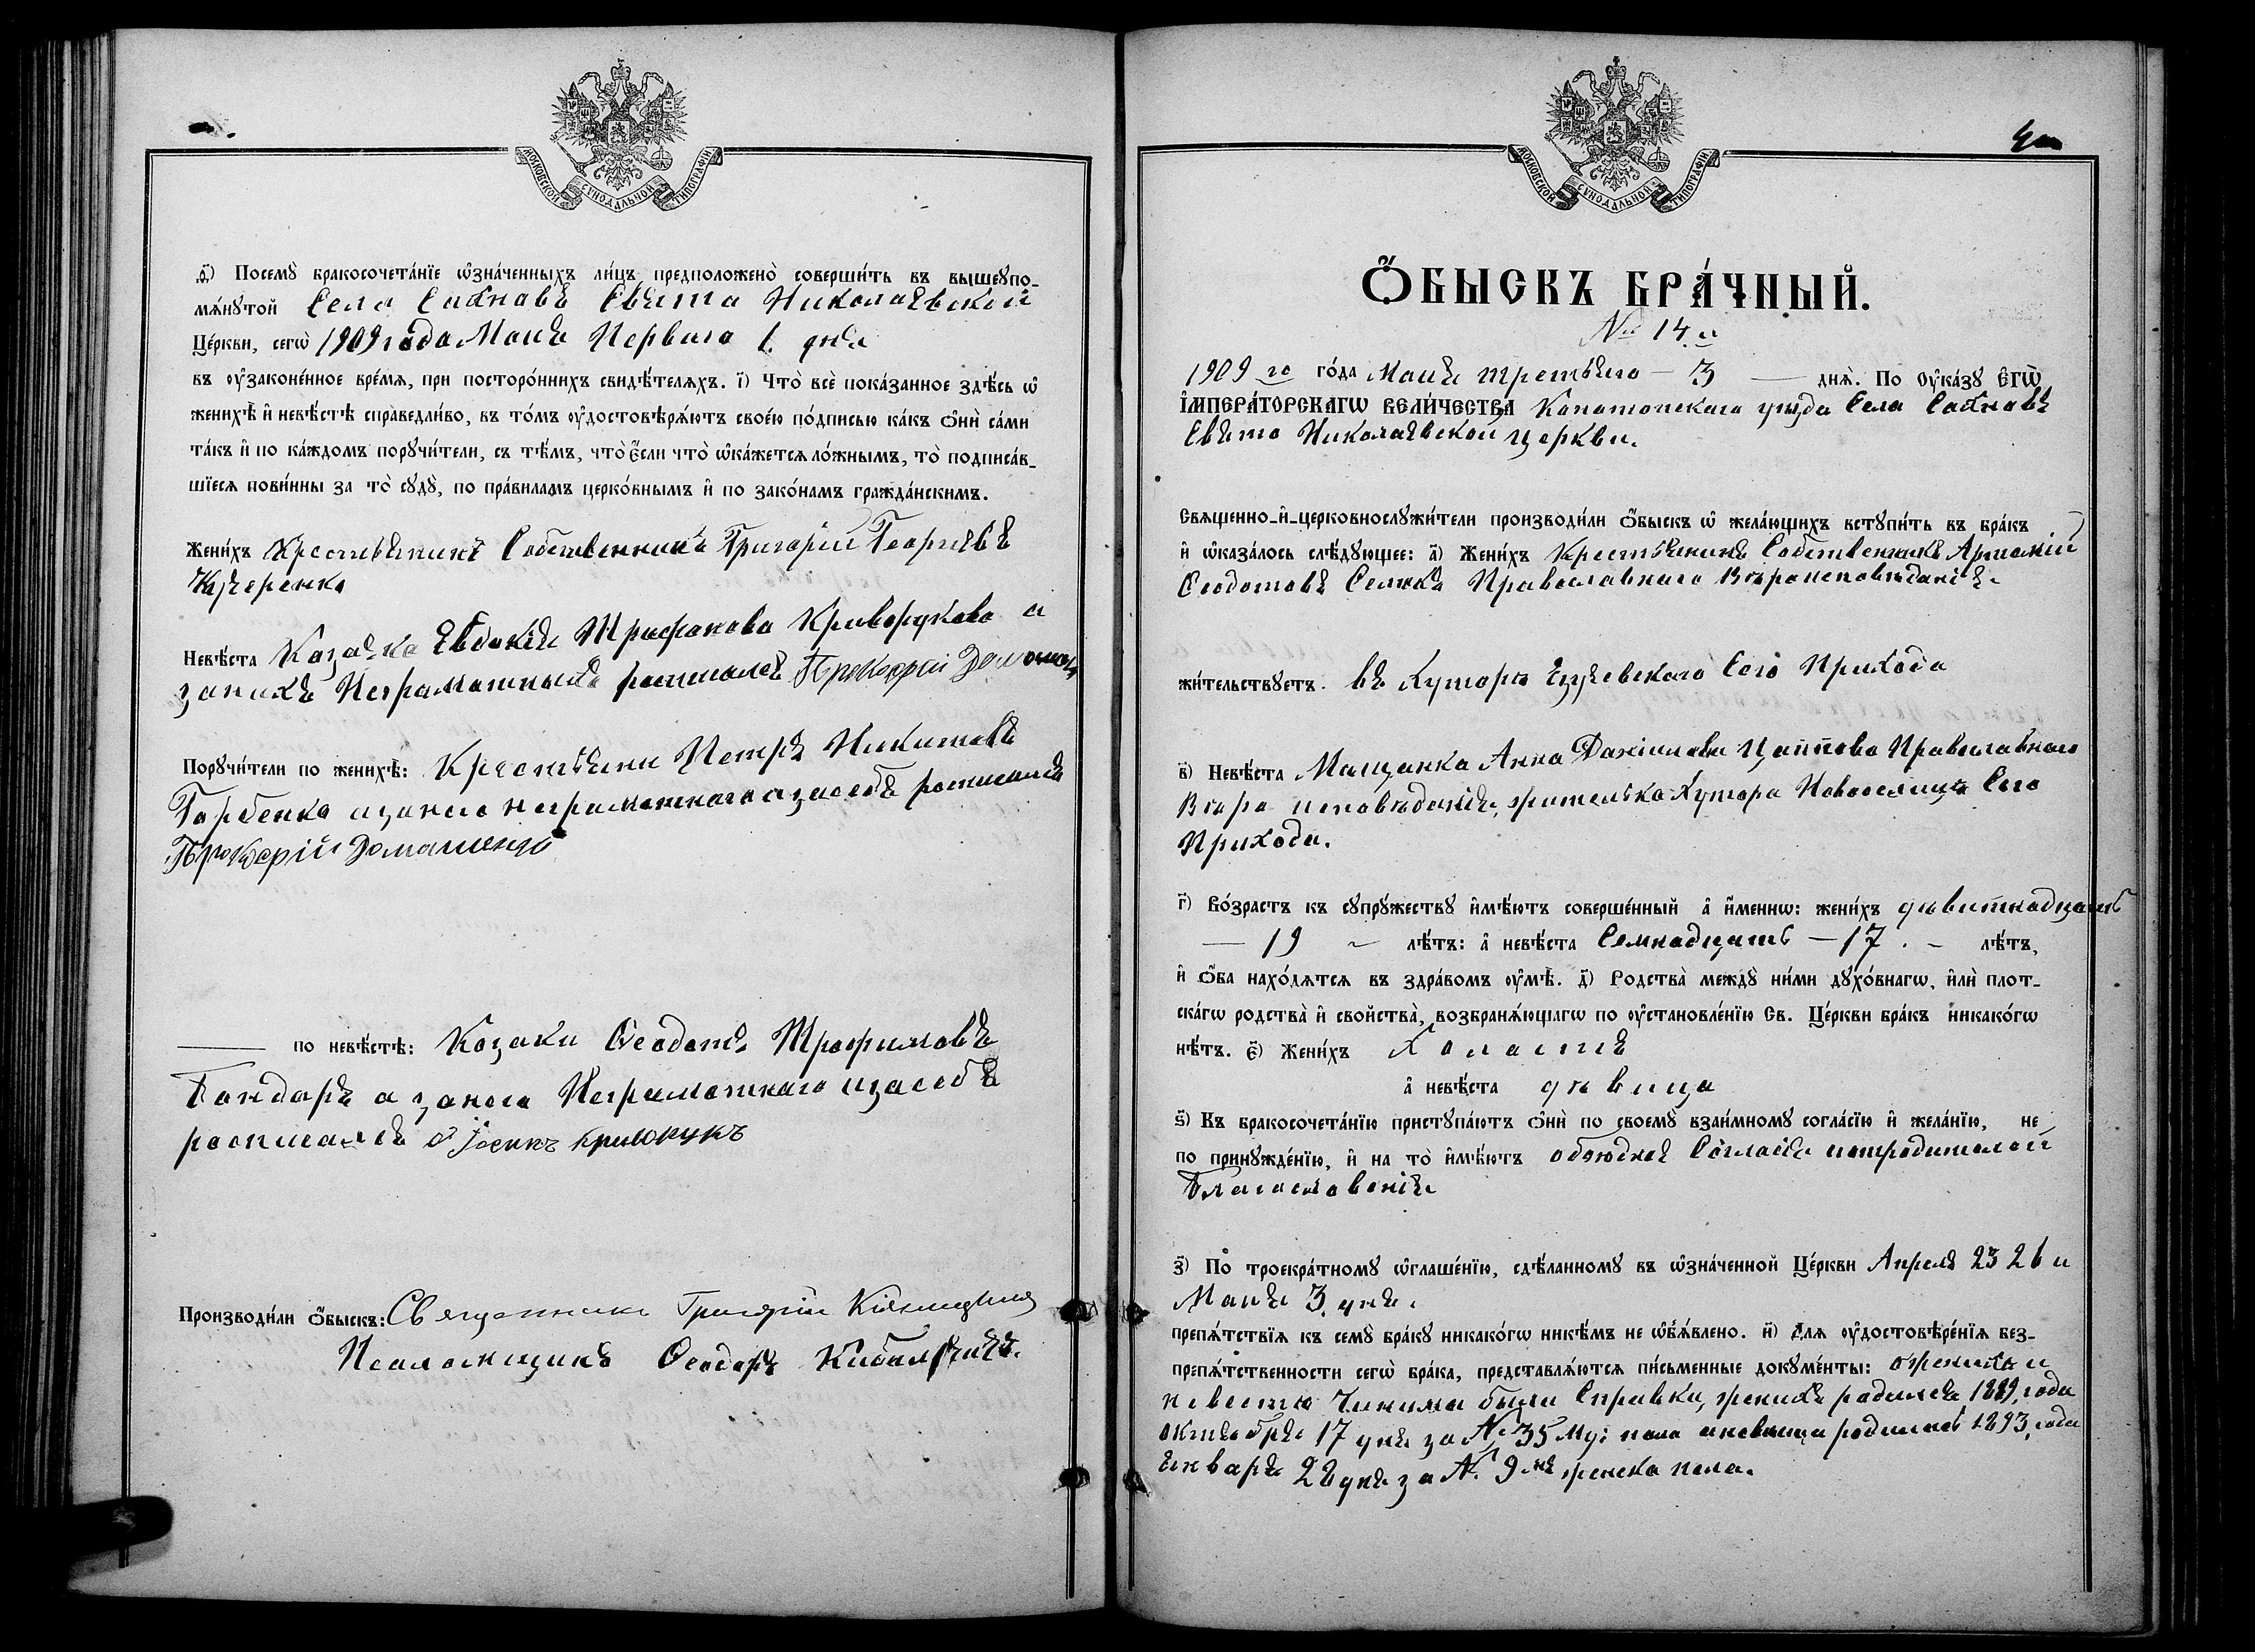 МОСКОВСКОЙ СУНОДАЛЬНОЙ ТИПОГРАФІИ
.ѳ҃) Посемꙋ̀ бракосочета́нїе ѡ҆зна́ченныхъ ли́цъ предположено̀ соверши́ть въ вышеꙋпо-
мѧ́нꙋтой Села Сахновъ Свято Николаевской
Це́ркви, сегѡ̀ 1909 года Мая Перваго 1. дня
въ ᲂу҆законе́нное вре́мѧ, при посторо́ннихъ свидѣ́телѧхъ. і҃) Что̀ всѐ пока́занное здѣ́сь ѡ҆
женихѣ̀ и҆ невѣ́стѣ справедли́во, въ то́мъ ᲂу҆достовѣрѧ́ютъ свое́ю по́дписью ка́къ ѻ҆нѝ са́ми
та́къ и҆ по ка́ждомъ порꙋчи́тели, съ тѣ́мъ, что̀ є҆́сли что̀ ѡ҆ка́жетсѧ ло́жнымъ, то̀ подписа́в-
шїесѧ пови́нны за то̀ сꙋдꙋ̀, по пра́виламъ церко́внымъ и҆ по зако́намъ гражда́нскимъ.
Жени́хъ Крестьянинъ Собственникъ Григорій Георгіевъ
Кучеренко
Невѣ́ста Казачка Евдокія Трифонова Криворукова а
занихъ Неграмотныхъ росписался Прокофій Домашенко
Порꙋчи́тели по женихѣ̀: Крестьяни Петръ Никитовъ
Горбенко азанего неграмотнаго изасебя росписался
Прокофій Домашенко
по невѣ́стѣ: Козаки Ѳеодотъ Трофимовъ
Бондарь а занего Неграмотнаго изасебя
росписался Іосипъ Крюкукъ
Производи́ли ѻ҆́быскъ: Священникъ Григорій
Псаломщикъ Ѳеодоръ Кибальчичъ.
МОСКОВСКОЙ СУНОДАЛЬНОЙ ТИПОГРАФІИ
Ѻ҆́БЫСКЪ БРА́ЧНЫЙ.
№ 14 й
1909 го го́да Мая третьяго — 3 — днѧ̀. По ᲂу҆ка́зꙋ Є҆ГѠ̀
І҆МПЕРА́ТОРСКАГѠ ВЕЛИ́ЧЕСТВА Конотопскаго уѣзда Села Сахновъ
Свято Николаевской церкви.
Свѧщенно-и҆-церковнослꙋжи́тели производи́ли ѻ҆́быскъ ѡ҆ жела́ющихъ встꙋпи́ть въ бра́къ
и҆ ѡ҆каза́лось слѣ́дꙋющее: а҃) Жени́хъ Крестьянинъ Собственникъ Артемій
Ѳеодотовъ Селюкъ Православнаго Вѣроисповѣданія
жи́тельствꙋетъ. въ Хуторѣ Сего Прихода
в҃) Невѣ́ста Мѣщанка Анна Даніилова Цаппова Православнаго
Вѣро исповѣданія, жителька Хутора Новоселица Сего
Прихода.
г҃) Во́зрастъ къ сꙋпрꙋ́жествꙋ и҆мѣ́ютъ соверше́нный а҆ и҆́меннѡ: жени́хъ дѣвятнадцать
— 19 ~ лѣ́тъ: а҆ невѣ́ста Семнадцать — 17. – лѣ́тъ,
и҆ ѻ҆́ба нахо́дѧтсѧ въ здра́вомъ ᲂу҆мѣ̀. д҃) Родства̀ междꙋ̀ ни́ми дꙋхо́внагѡ, и҆лѝ плот-
ска́гѡ родства̀ и҆ сво́йства, возбранѧ́ющагѡ по ᲂу҆становле́нїю Св. Це́ркви бра́къ никако́гѡ
нѣ́тъ. є҃) Жени́хъ Холостъ
а҆ невѣ́ста дѣвица
ѕ҃) Къ бракосочета́нїю пристꙋпа́ютъ ѻ҆нѝ по своемꙋ̀ взаи́мномꙋ согла́сїю и҆ жела́нїю, не
по принꙋжде́нїю, и҆ на то̀ и҆мѣ́ютъ обоюдное Согласіе иотродителей
Благословеніе
з҃) По̀ троекра́тномꙋ ѡ҆глаше́нїю, сдѣ́ланномꙋ въ ѡ҆зна́ченной Це́ркви Апреля 23 26 и
Мая 3. дня.
препѧ́тствїѧ къ семꙋ̀ бра́кꙋ никако́гѡ никѣ́мъ не ѡ҆б̾ѧ́влено. и҃) Для ᲂу҆достовѣре́нїѧ без-
препѧ́тственности сегѡ̀ бра́ка, представлѧ́ютсѧ пи́сьменные докꙋме́нты: ожениху и
невестю Чинимы были Справки, женихъ родился 1889. года
октября 17 дня за № 35 Му: пола аневица родилась 1893. года
Января 28 дня за №. 9 мъ женска пола.